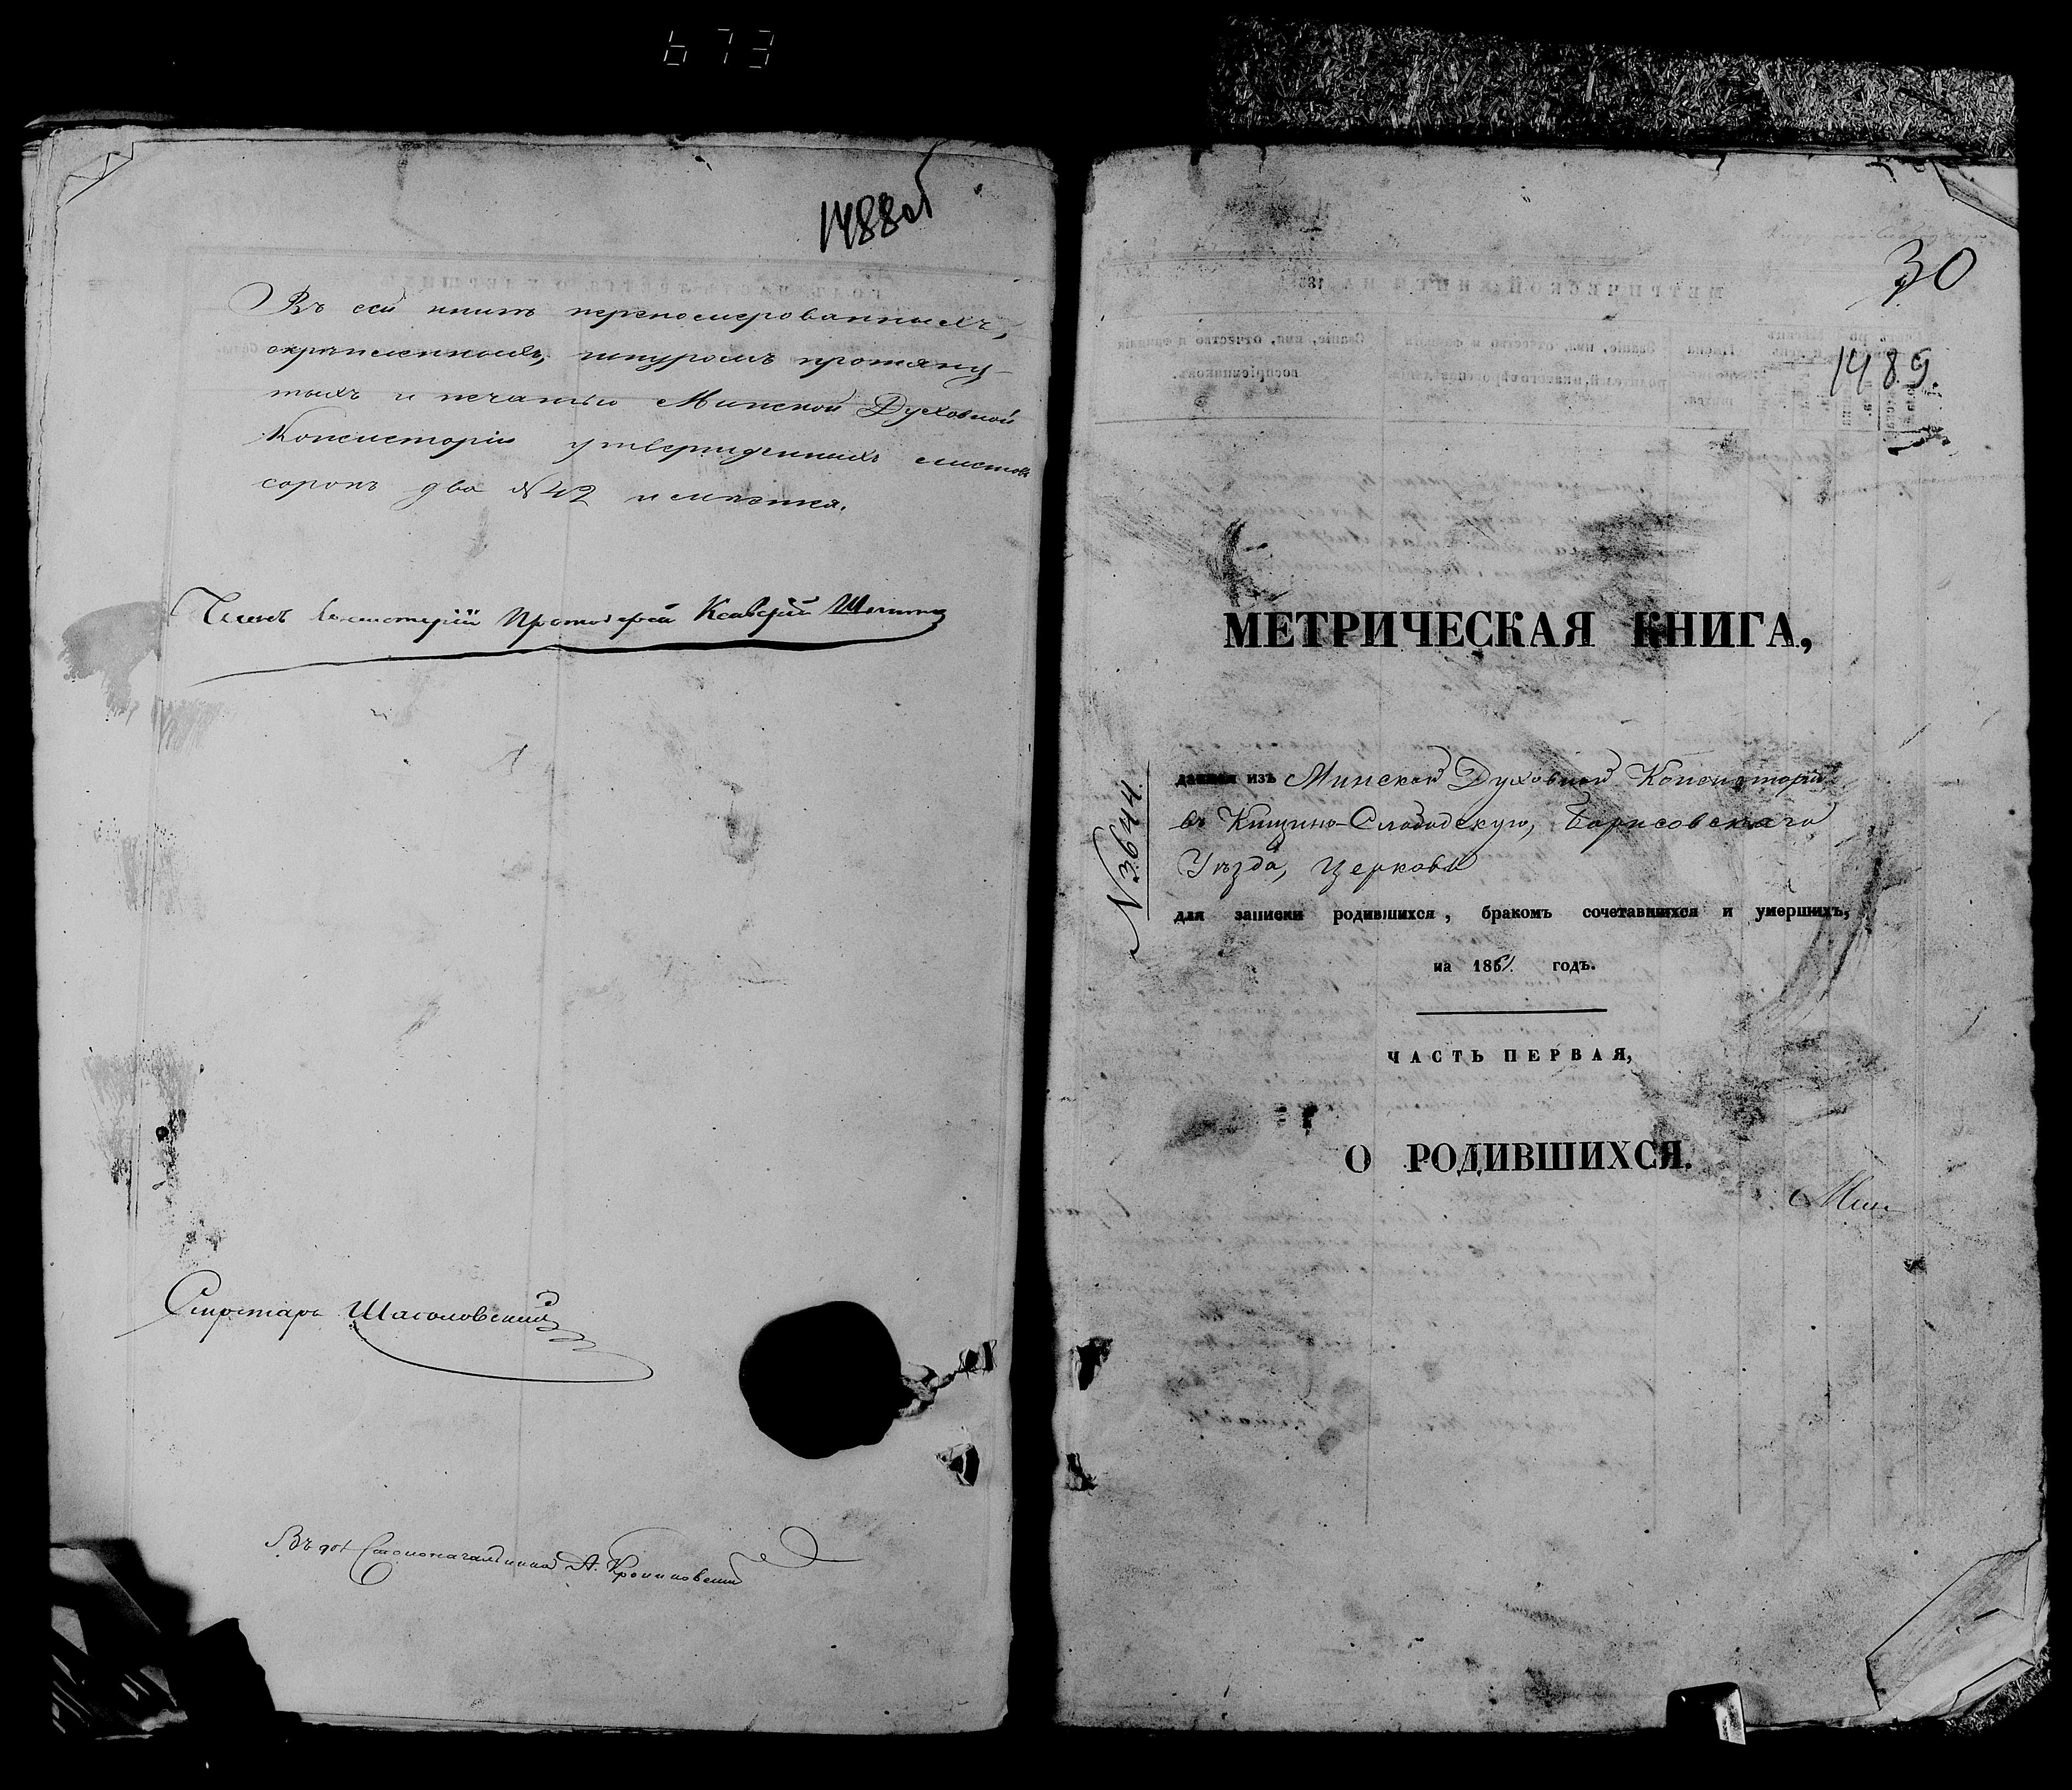 673
1488об
Въ сей книгѣ перенумерованныхъ,
скрѣпленныхъ, шнуромъ протяну-
тыхъ и печатью Минской Духовной
Консисторіи утвержденныхъ листовъ
сорокъ два № 42 имѣется.
Членъ Консисторіи Протоіерей
Секретарь
Въ дол. Столоначальника А.
30
1489.
МЕТРИЧЕСКАЯ КНИГА,
№ 3644.
данная изъ Минской Духовной Консисторіи
въ Кищино-Слободскую, Борисовскаго
Уѣзда, церковь
для записки родившихся, бракомъ сочетавшихся и умершихъ,
на 186 годъ.
ЧАСТЬ ПЕРВАЯ,
О РОДИВШИХСЯ.
Мин